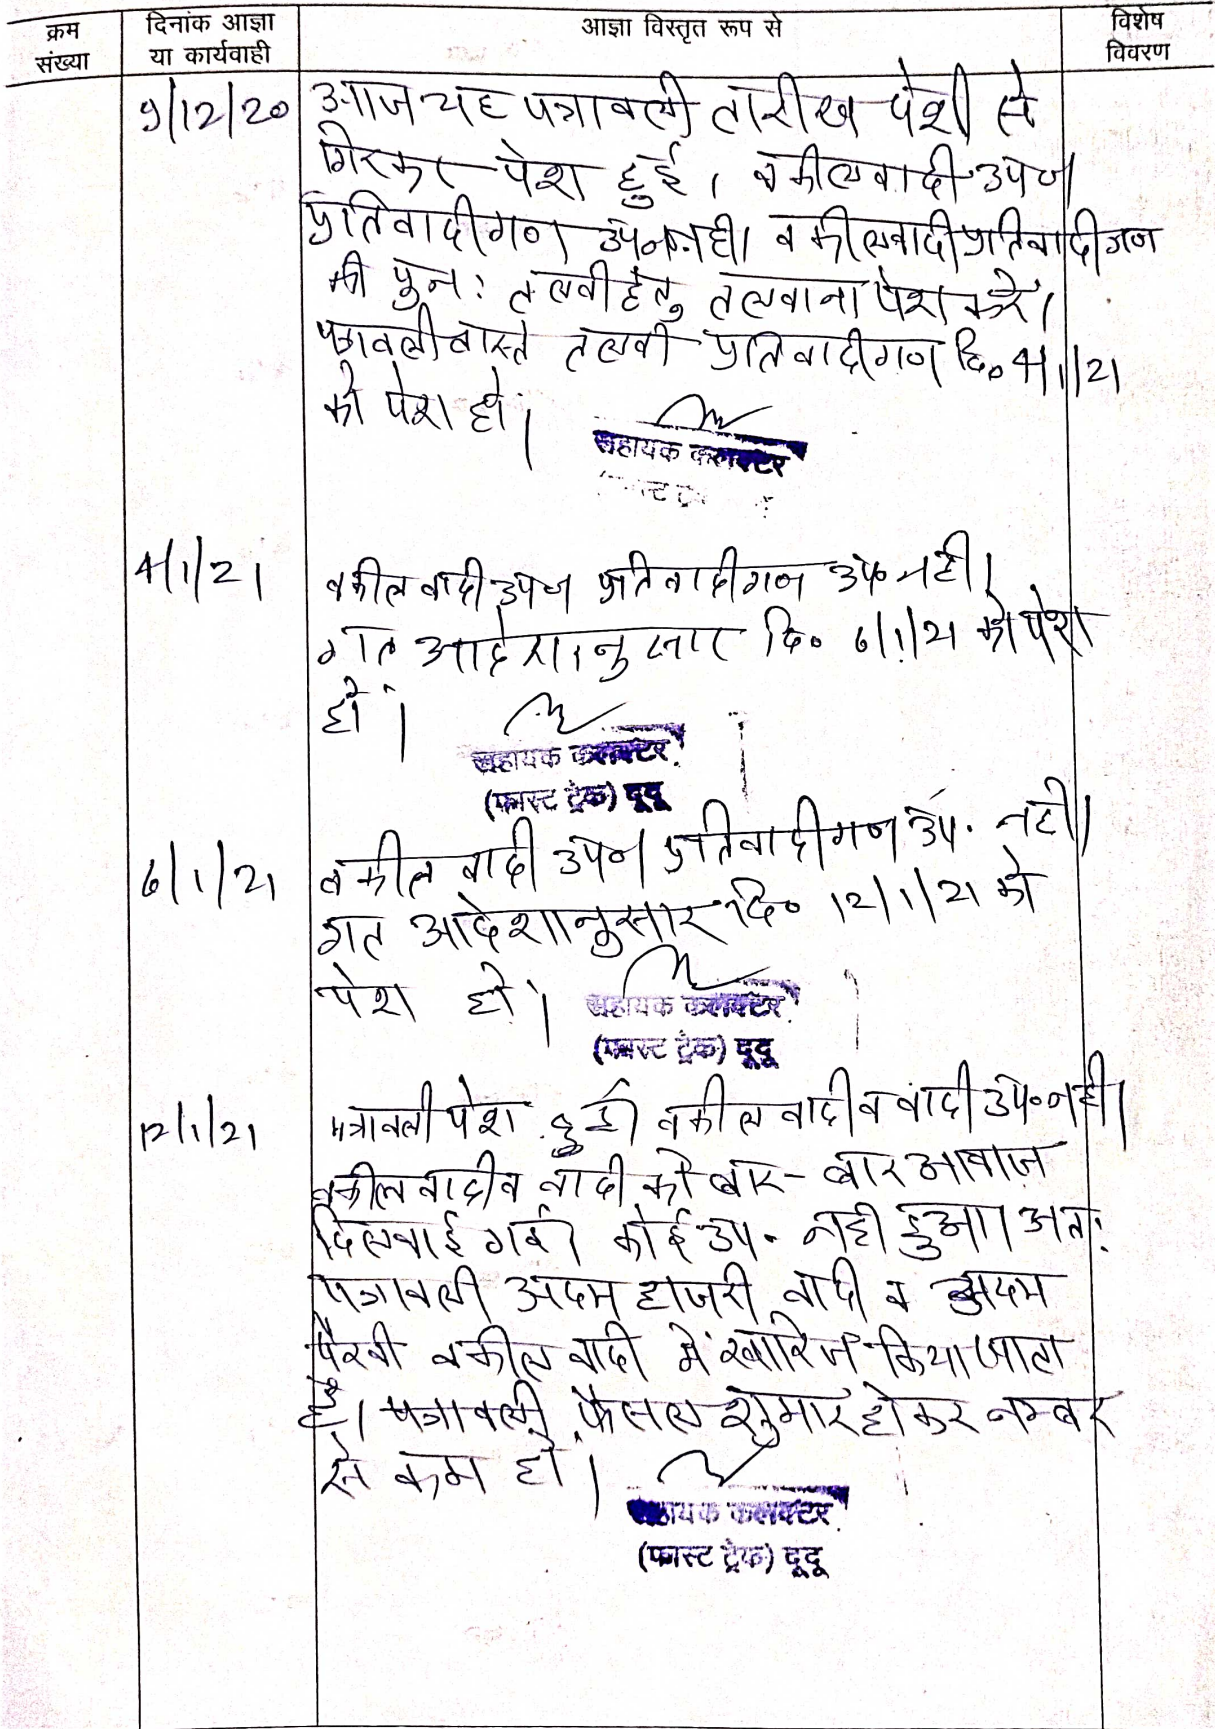 क्रम संख्या
दिनांक आज्ञा या कार्यवाही
आज्ञा विस्तृत रूप से
विशेष विवरण
9/12/20
आज यह पत्रावली तारीख पेशी से
गिरकर पेश हुई। वकील वादी उप०।
प्रतिवादीगण उप० नही। वकील वादी प्रतिवादीगण
की पुनः तलवी हेतु तलवाना पेश करें।
पत्रावली वास्ते तलवी प्रतिवादीगण दि० 4/1/21
को पेश हो।
सहायक कलक्टर
4/1/21
वकील वादी उप० प्रतिवादीगण उप० नही।
गत आदेशानुसार दि० 6/1/21 को पेश
हो।
सहायक कलक्टर
(फास्ट ट्रेक) दूदू
6/1/21
वकील वादी उप०। प्रतिवादीगण उप. नही।
गत आदेशानुसार दि० 12/1/21 को
पेश हो।
सहायक कलक्टर
(फास्ट ट्रेक) दूदू
12/1/21
पत्रावली पेश हुई। वकील वादी व वादी उप० नही।
वकील वादी व वादी को बार-बार आवाज
दिलवाई गई। कोई उप. नही हुआ। अतः
पत्रावली अदम हाजरी वादी व अदम
पैरवी वकील वादी में खारिज किया जाता
है। पत्रावली फैसल शुमार होकर नम्बर
से कम हो।
सहायक कलक्टर
(फास्ट ट्रेक) दूदू